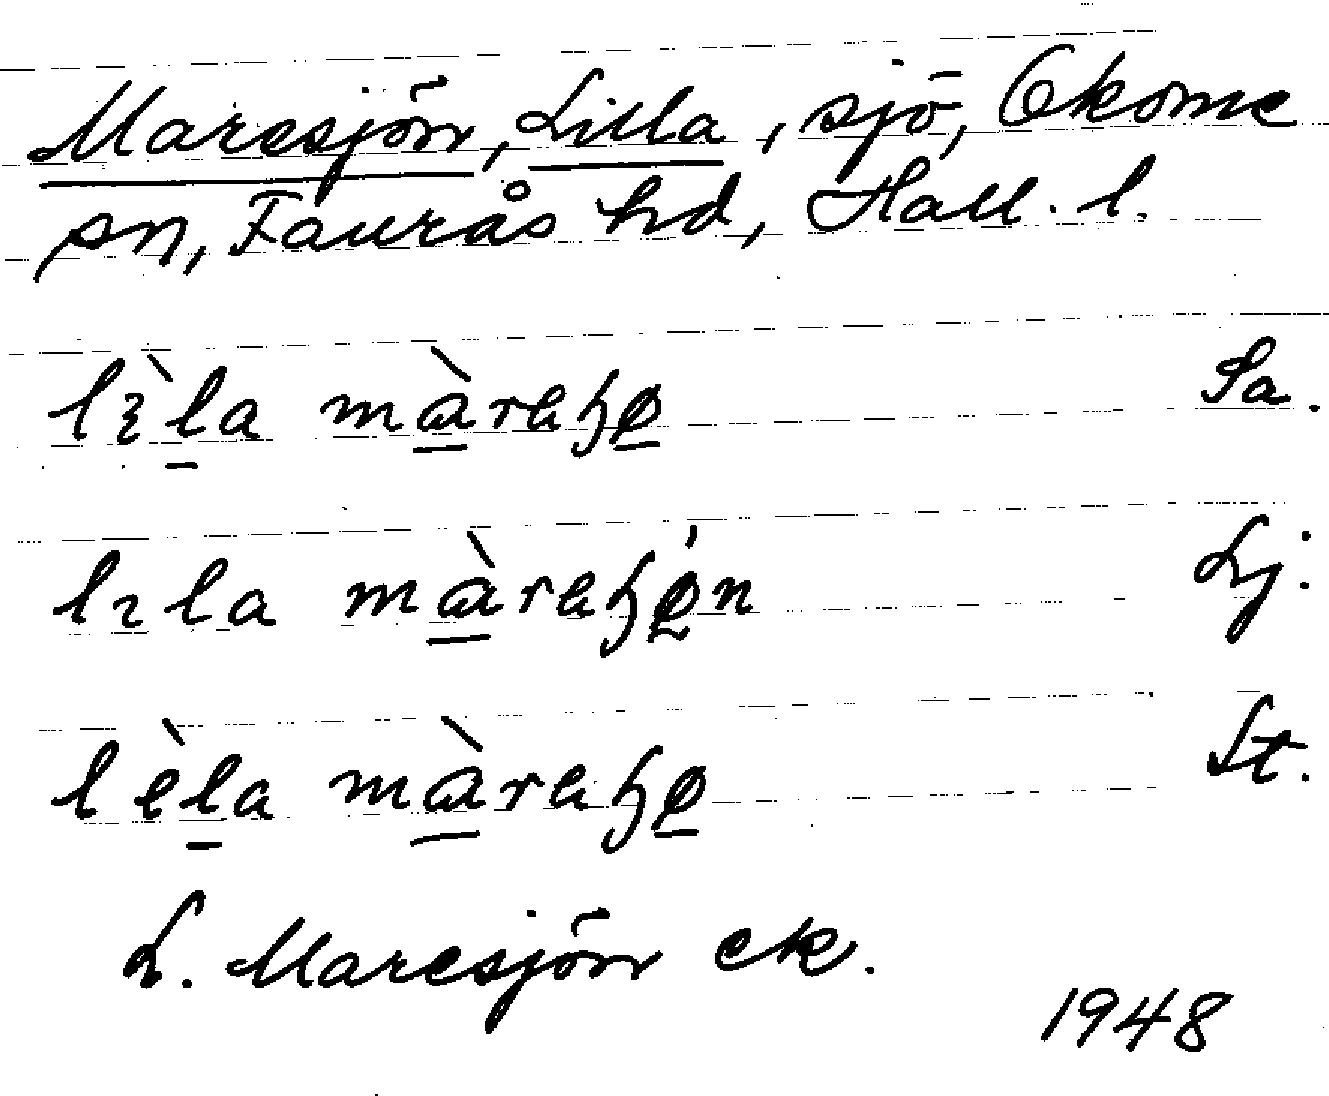 Maresjön, Lilla, sjö, Okome
sn, Faurås hd, Hall. l.
lìla màreʒø Sa.
lıla màreʒøn Lj.
lèla màreʒø St.
L. Maresjön ek.
1948